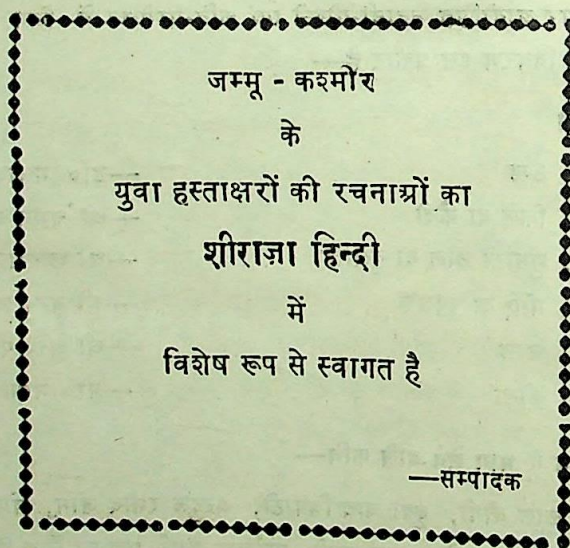 जम्मू - कश्मीर
के
युवा हस्ताक्षरों की रचनाग्रों का
शीराज़ा हिन्दी
में
विशेष रूप से स्वागत है
—सम्पादक